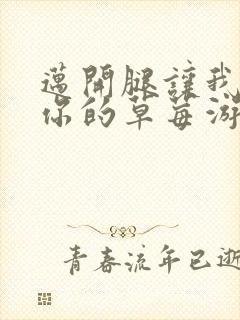 邁開腿讓我
你的草莓游
青春流年已逝